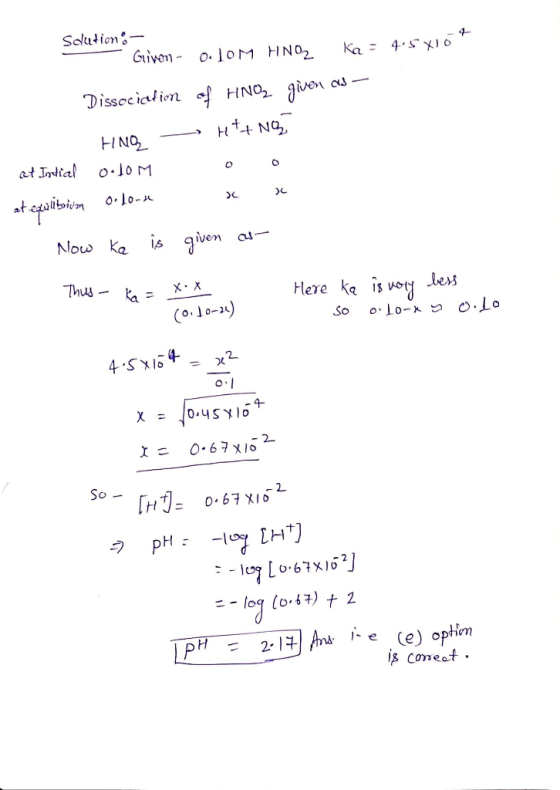 Solution:—
Given - 0.10M HNO₂ Ka = 4.5×10⁻⁴
Dissociation of HNO₂ given as —
HNO₂ ⟶ H⁺ + NO₂⁻
at Intial 0.10M 0 0
at equilibrium 0.10-x x x
Now Ka is given as —
Thus — Ka = x·x / (0.10-x) Here Ka is very less
so 0.10-x ≈ 0.10
4.5×10⁻⁴ = x² / 0.1
x = √0.45×10⁻⁴
x = 0.67×10⁻²
So — [H⁺] = 0.67×10⁻²
⇒ pH = -log [H⁺]
= -log [0.67×10⁻²]
= -log (0.67) + 2
pH = 2.17 Ans. i-e (e) option
is correct.